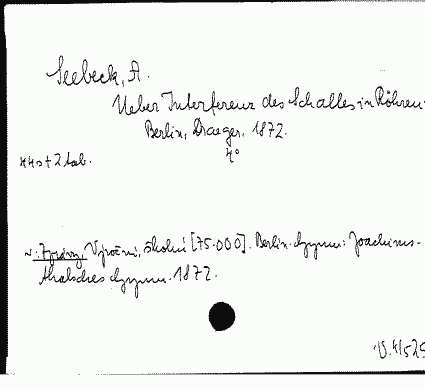 Seebeck, A.
Ueber Interferenz des Schalles in Röhren.
Berlin, Draeger, 1872.
4°
44s+2 tab.
v: Zprávy, Výroční, školní [75.000]. Berlin. Gymn: Joachims-
thalsches Gymn. 1872.